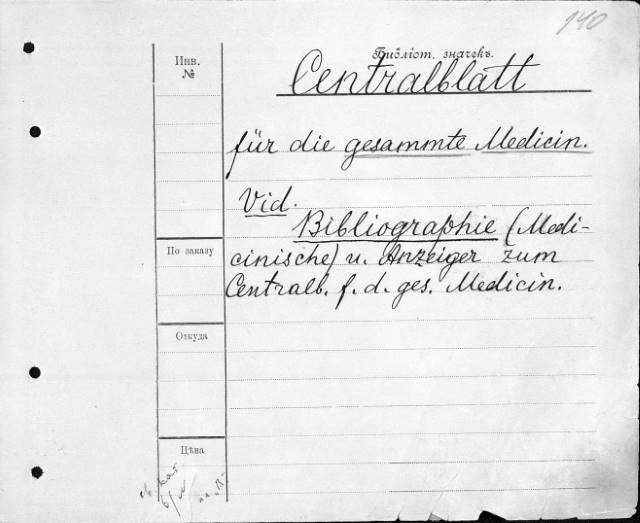 140
Инв.
№
Библіот. значекъ.
Centralblatt
für die gesammte Medicin.
Vid.
Bibliographie (Medi-
cinische) u. Anzeiger zum
Centralb. f. d. ges. Medicin.
По заказу
Откуда
Цѣна